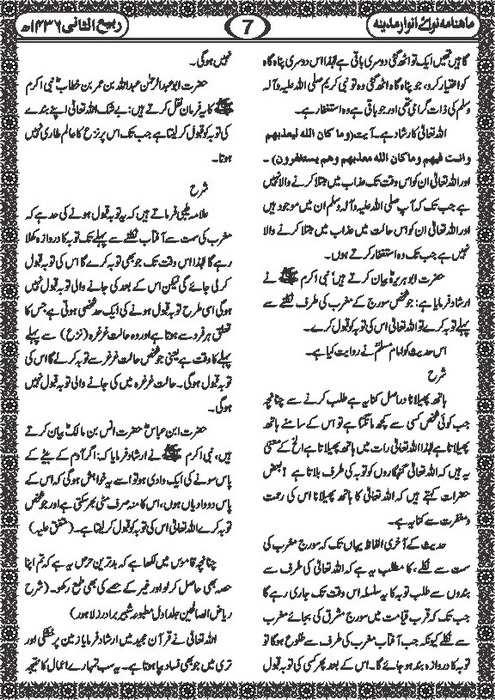 ماھنامہ نوائے انوار مدینہ
7
ربیع الثانی ۱۴۳۶ھ
گاہیں تھیں ایک تو اٹھ گئی دوسری باقی ہے لہٰذا اس پناہ گاہ
کو اختیار کرو، جو پناہ گاہ اٹھ گئی وہ تو نبی کریم صلی اللہ علیہ وآلہ
وسلم کی ذات گرامی تھی اور جو باقی ہے وہ استغفار ہے۔
اللہ تعالیٰ کا ارشاد ہے۔ آیت (وما کان اللہ لیعذبھم
وانت فیھم وماکان اللہ معذبھم وھم یستغفرون)۔
اور اللہ تعالیٰ ان کو اس وقت تک عذاب میں مبتلا کرنے والا نہیں
ہے جب تک کہ آپ صلی اللہ علیہ وآلہ وسلم ان میں موجود ہیں
اور اللہ تعالیٰ ان کو اس حالت میں عذاب میں مبتلا کرنے والا
نہیں ہے جب تک وہ استغفار کرتے ہوں۔
حضرت ابو ہریرہؓ بیان کرتے ہیں نبی اکرم ﷺ نے
ارشاد فرمایا ہے: جو شخص سورج کے مغرب کی طرف نکلنے سے
پہلے توبہ کرے تو اللہ تعالیٰ اس کی توبہ کو قبول کرے گا۔
اس حدیث کو امام مسلمؒ نے روایت کیا ہے۔
شرح
ہاتھ پھیلانا دراصل کنایہ ہے طلب کرنے سے چنانچہ
جب کوئی شخص کسی سے کچھ مانگتا ہے تو اس کے سامنے ہاتھ
پھیلاتا ہے لہٰذا اللہ تعالیٰ رات میں ہاتھ پھیلاتا ہے الخ کے معنی
یہ ہیں کہ اللہ تعالیٰ گنہگاروں کو توبہ کی طرف بلاتا ہے بعض
حضرات کہتے ہیں کہ اللہ تعالیٰ کا ہاتھ پھیلانا اس کی رحمت
ومغفرت سے کنایہ ہے۔
حدیث کے آخری الفاظ یہاں تک کہ سورج مغرب کی
سمت سے نکلے، کا مطلب یہ ہے کہ اللہ تعالیٰ کی طرف سے
بندوں سے طلب توبہ کا یہ سلسلہ اس وقت تک جاری رہے گا
جب تک کہ قرب قیامت میں سورج مشرق کی بجائے مغرب
سے نکلے کیونکہ جب آفتاب مغرب کی طرف سے طلوع ہوگا تو
توبہ کا دروازہ بند ہو جائے گا۔ اس کے بعد پھر کسی کی توبہ قبول
نہیں ہوگی۔
حضرت ابو عبدالرحمٰن عبداللہ بن عمر بن خطابؓ نبی اکرم
ﷺ کا یہ فرمان نقل کرتے ہیں: بے شک اللہ تعالیٰ اپنے بندے
کی توبہ کو قبول کر لیتا ہے جب تک اس پر نزع کا عالم طاری نہیں
ہوتا۔
شرح
علامہ طیبی فرماتے ہیں کہ یہ توبہ قبول ہونے کی حد ہے کہ
مغرب کی سمت سے آفتاب نکلنے سے پہلے تک توبہ کا دروازہ کھلا
رہے گا لہٰذا اس وقت تک جو بھی توبہ کرے گا اس کی توبہ قبول
کر لی جائے گی لیکن اس کے بعد کی جانے والی توبہ قبول نہیں
ہوگی اسی طرح توبہ قبول ہونے کی ایک حد شخصی ہوتی ہے جس کا
تعلق ہر فرد سے ہوتا ہے اور وہ حالت غرغرہ (نزع) سے پہلے
پہلے کا وقت ہے یعنی جو شخص حالت غرغرہ سے توبہ کرے گا اس کی
توبہ قبول ہوگی۔ حالت غرغرہ میں کی جانے والی توبہ قبول نہیں
ہوگی۔
حضرت ابن عباسؓ حضرت انس بن مالکؓ بیان کرتے
ہیں، نبی اکرم ﷺ نے ارشاد فرمایا کہ: اگر آدم کے بیٹے کے
پاس سونے کی ایک وادی ہو تو اسے یہ خواہش ہوگی کہ اس کے
پاس دو وادیاں ہوں، اس کا منہ صرف مٹی بھر سکتی ہے اور جو شخص
توبہ کرے اللہ تعالیٰ اس کی توبہ کو قبول کر لیتا ہے۔ (متفق علیہ)
چنانچہ قاموس میں لکھا ہے کہ بدترین حرص یہ ہے کہ تم اپنا
حصہ بھی حاصل کر لو اور غیر کے حصے کی بھی طمع رکھو۔ (شرح
ریاض الصالحین جلد اول مطبوعہ شبیر برادرز لاہور)
اللہ تعالیٰ نے قرآن مجید میں ارشاد فرمایا زمین پر خشکی اور
تری میں جو بھی فساد بپا ہوتا ہے۔ یہ سب تمہارے اعمال کا نتیجہ